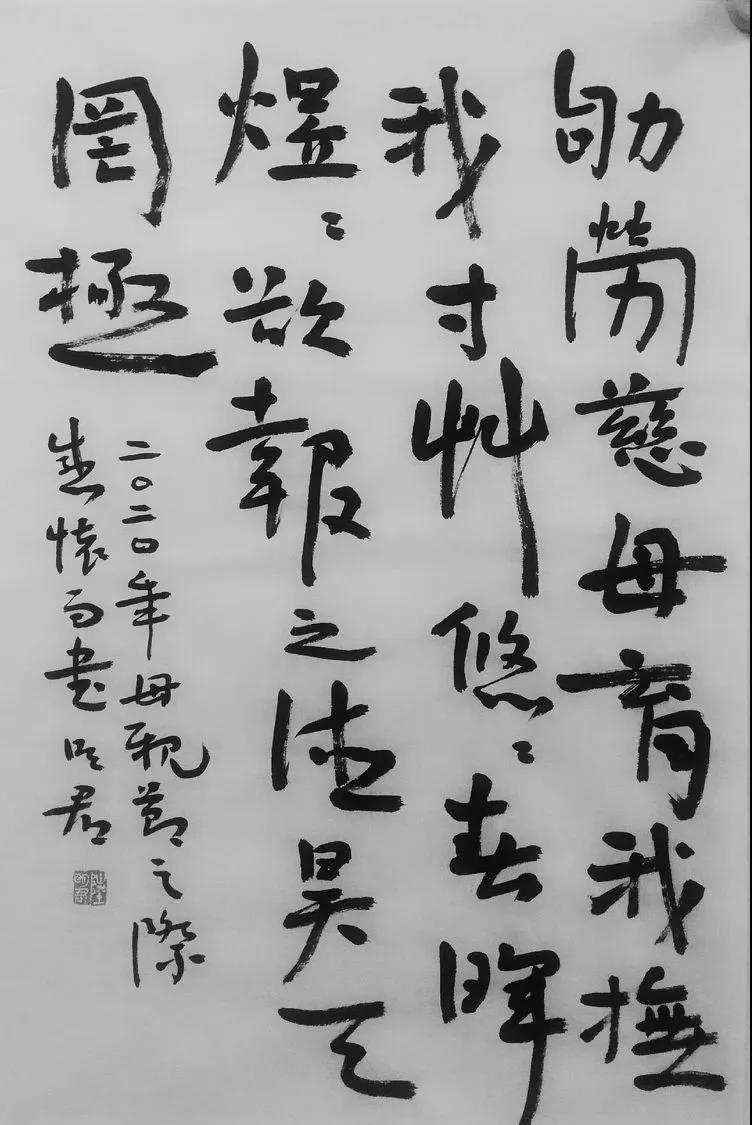 劬勞慈母育我撫
我寸艸悠〻春暉
煜〻欲報之德昊天
罔極
二〇二〇年母親節之際
感懷而書明君